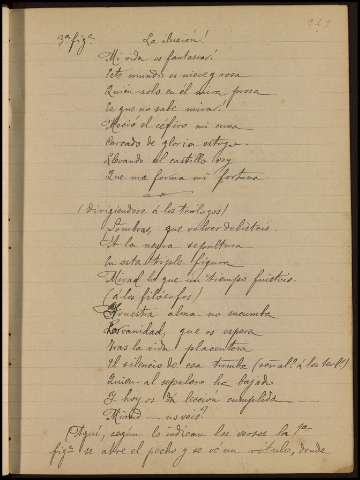 3ª fig.ª La ilusión!
Mi vida es fantasear!
Este mundo es nieve y rosa
Quien solo en él mira prosa
Es que no sabe mirar!
Meció el céfiro mi cuna
Cercado de gloria estoy
Llevando al castillo voy
Que me forma mi fortuna
(dirigiendose á los teólogos)
Sombras, que volver debisteis
A la negra sepultura
En esta triple figura
Mirad lo que un tiempo fuisteis.
(á los filósofos)
Vuestra alma no sucumba
La vanidad, que os espera
Tras la vida placentera
El silencio de esa tumba (señal.ª á los
Quien al sepulcro ha bajado
Y hoy os dá leccion cumplida
Mirad no veis?
Aqui, segun lo indican los versos la 1ª
fig.ª se abre el pecho y se vé un rótulo, donde